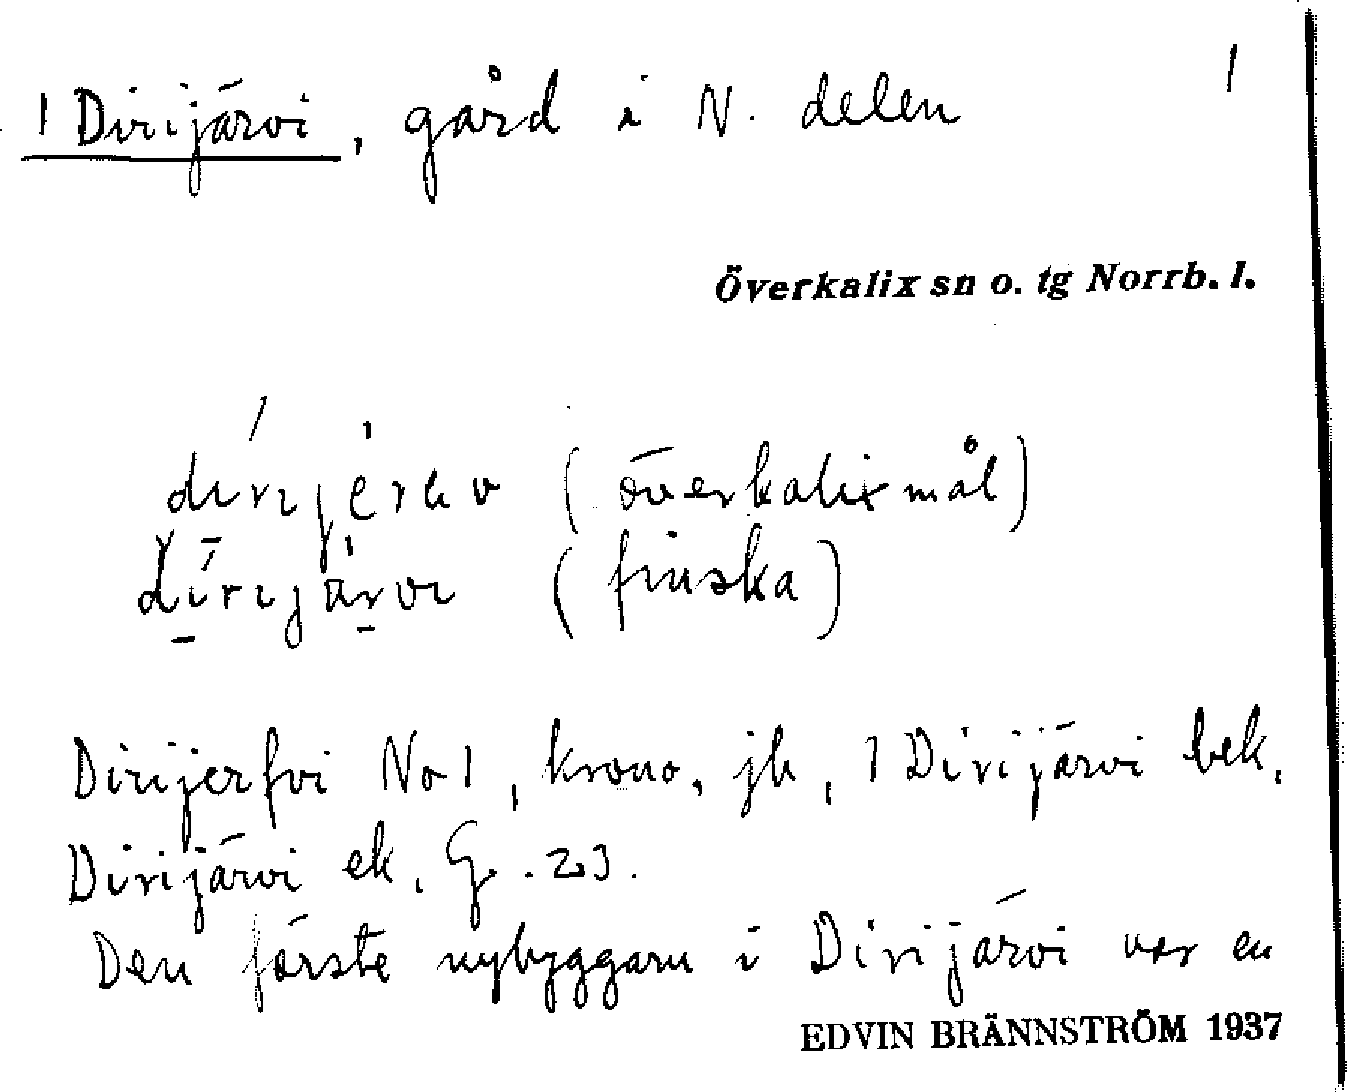 1 Dirijärvi, gård i N. delen 1
Överkalix sn o. tg Norrb. l.
(överkalixmål)
(finska)
Dirijerfvi No 1, krono, jb, 1 Dirijärvi bek.
Dirijärvi ek. G. 23.
Den förste nybyggarn i Dirijärvi var en
EDVIN BRÄNNSTRÖM 1937